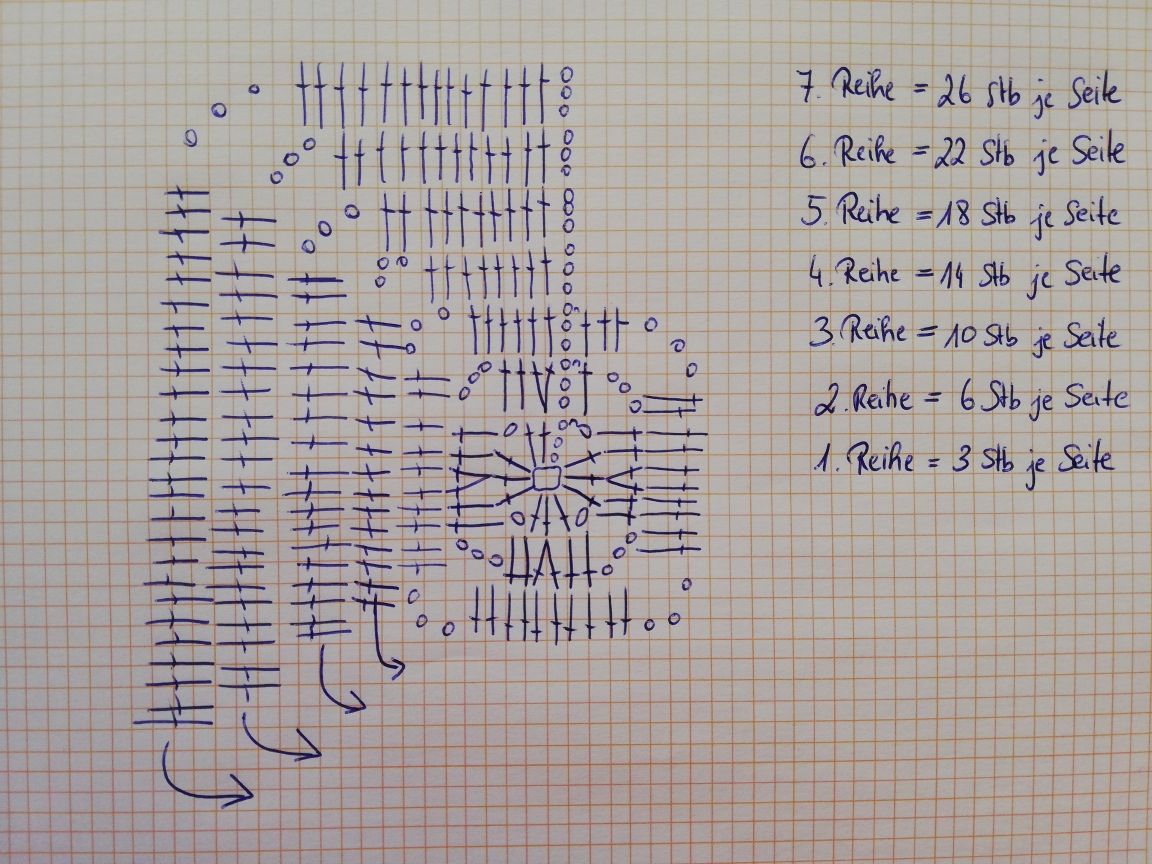 7. Reihe = 26 Stb je Seite
6. Reihe = 22 Stb je Seite
5. Reihe = 18 Stb je Seite
4. Reihe = 14 Stb je Seite
3. Reihe = 10 Stb je Seite
2. Reihe = 6 Stb je Seite
1. Reihe = 3 Stb je Seite